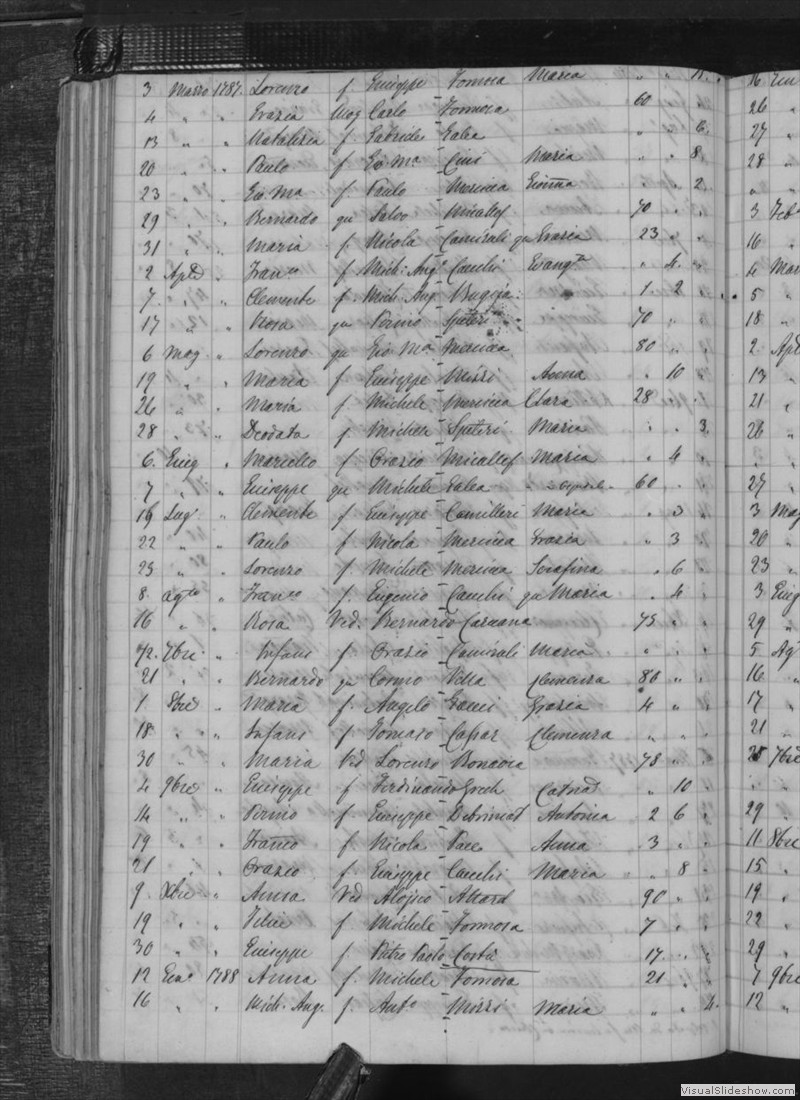 3 Marzo 1787. Lorenzo f. Giuseppe Formosa Maria " " 11.
4 " " Grazia Mog Carlo Formosa 60
13 " " Natalizia f Gabriele Galea " " 6.
20 " " Paulo f Gio Ma Cini Maria " " 8
23 " " Gio Ma f Paulo Mercieca Gioanna " " 2
29 " " Bernardo qu Salvo Micallef 70 " "
31 " " Maria f. Nicola Camirali qu Grazia 23 " "
2 Aple " Franco f Mich: Ang. Cauchi Evangta " 4.
7. " " Clemente f. Mich. Ang Bugeja. 1 2
17 " " Rosa qu Spiteri 70 "
6 Mag. " Lorenzo qu Gio Ma Mercieca 80 " "
19 " " Maria f Giuseppe Mizzi Anna " 10 "
26 " " Maria f Michele Mercieca Clara 28 "
28 " " Deodata f Michele Spiteri Maria " " 3.
6. Giug " Mariello f Orazio Micallef Maria " 4 "
7 " " Giuseppe qu Michele Galea 60 "
19 Lug. " Clemente f Giuseppe Camilleri Maria " 3 "
22 " " Paulo f Nicola Mercieca Grazia " 3
23 " " Lorenzo f Michele Mercieca Serafina " 6
8 Agto " Franco f. Eugenio Cauchi qu Maria " 4
16 " " Rosa Ved. Bernardo Caruana 75 "
12. 7bre " Infans f Orazio Camirali Maria " "
21 " " Bernardo qu Cosmo Vella Clemenza 86 "
1 8bre " Maria f. Angelo Gauci Grazia 4 "
18 " " Infans f Tomaso Cassar Clemenza " "
30 " " Maria Ved Lorenzo Boncore 78 "
4 9bre " Giuseppe f Ferdinando Grech Catna " 10 "
14 " " f Giuseppe Antonia 2 6
19 " " Franco f Nicola Pace Anna 3 "
21 " " Orazio f Giuseppe Cauchi Maria " 8
9. Xbre " Anna Ved Aloisio Attard 90 "
19 " " Felice f Michele Formosa 7 "
30 " " Giuseppe f Pietro Paolo Costa 17
12 Gen. 1788 Anna f Michele Formosa 21
16 " " Mich. Ang. f. Anto Mizzi Maria " " 4.
16 Gen
26 "
27 "
28 "
3 Feb
16 "
4 Mar
5 "
18 "
2 Aple
13 "
21 "
26 "
27 "
3 Mag
20 "
23 "
3 Giug
29 "
5 Ag
16 "
17 "
21 "
7bre
29 "
11 8bre
15 "
19 "
22 "
29 "
7 9bre
12 "
VisualSlideshow.com